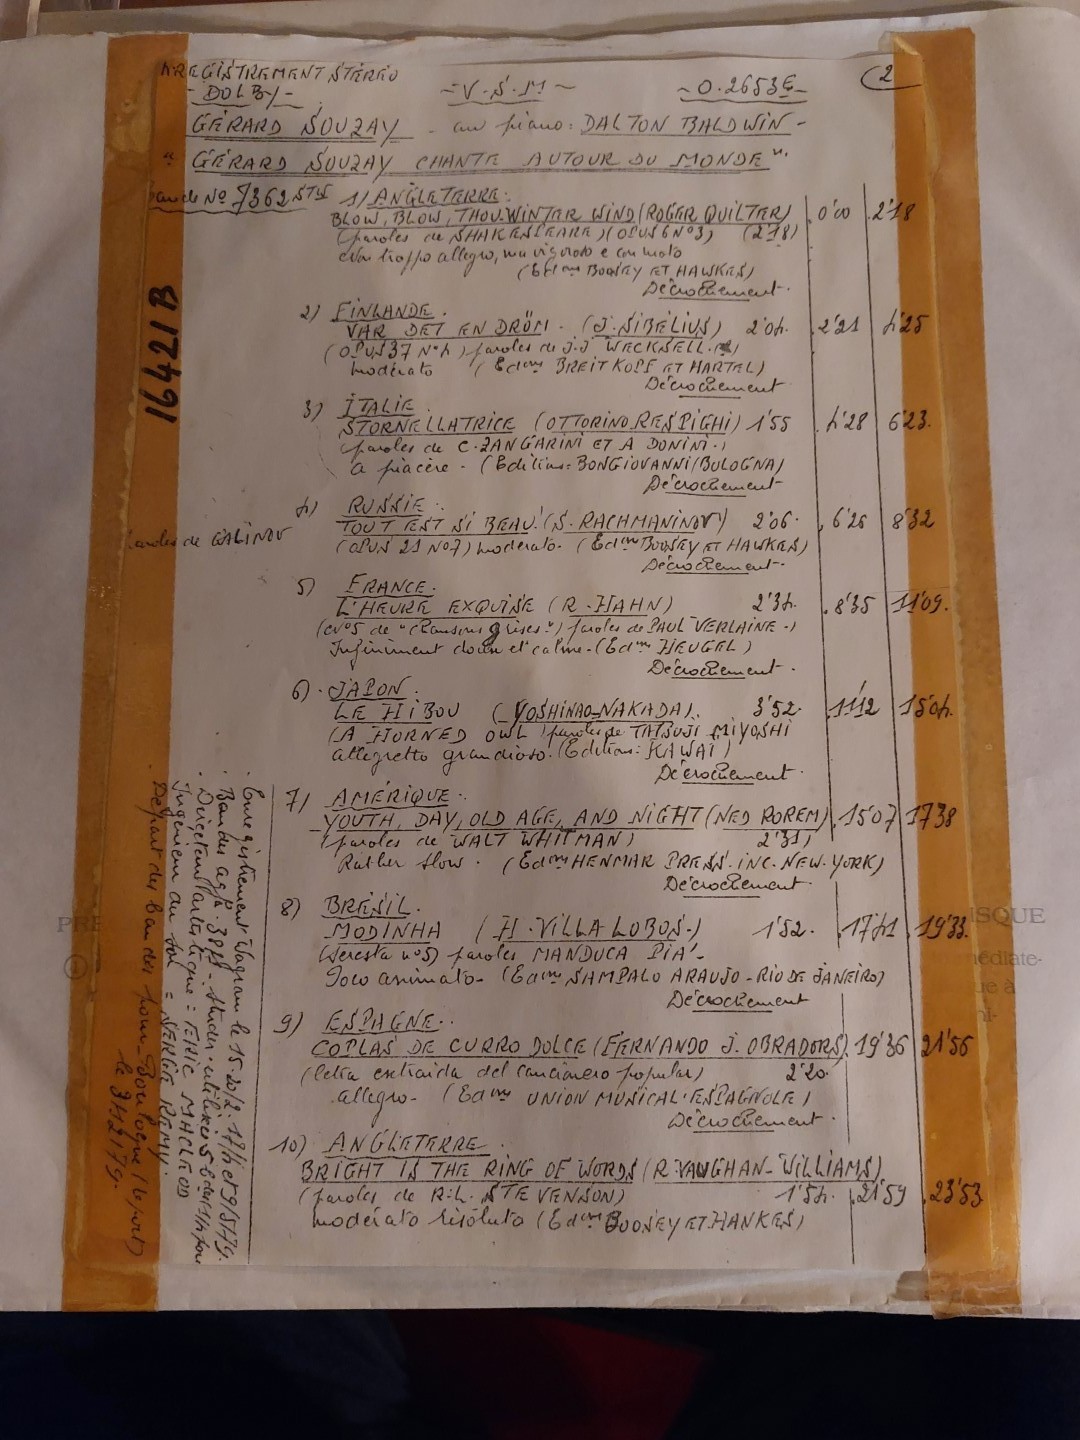 ENREGISTREMENT STÉRÉO
- DOLBY - - V.S.M - - O.2653E - (2
GÉRARD SOUZAY - au piano: DALTON BALDWIN -
" GÉRARD SOUZAY CHANTE AUTOUR DU MONDE ".
bande No 7362 STU
1) ANGLETERRE.
BLOW, BLOW, THOU WINTER WIND (ROGER QUILTER) 0'00 2'18
(paroles de SHAKESPEARE) (OPUS 6 No 3) (2'18)
Non troppo allegro, ma vigoroso e con moto
(Edons BOOSEY ET HAWKES)
Décrochement.
2) FINLANDE.
VAR DET EN DRÖM. (J. SIBÉLIUS) 2'04. 2'21 4'25
(OPUS 37 No 4) paroles de J.J WECKSELL.
moderato (Edons BREITKOPF ET HARTEL)
Décrochement
3) ITALIE.
STORNELLATRICE (OTTORINO RESPIGHI) 1'55 4'28 6'23.
(paroles de C. ZANGARINI ET A DONINI.)
a piacère - (Editions: BONGIOVANNI (BOLOGNA)
Décrochement
4) RUSSIE.
TOUT EST SI BEAU! (S. RACHMANINOV) 2'06. 6'26 8'32
paroles de GALINOV
(OPUS 21 No 7) moderato. (Edons BOOSEY ET HAWKES)
Décrochement.
5) FRANCE.
L'HEURE EXQUISE (R. HAHN) 2'34. 8'35 11'09.
(No 5 de "Chansons grises") paroles de PAUL VERLAINE.)
Infiniment doux et calme. (Edons HEUGEL)
Décrochement.
6). JAPON.
LE HIBOU (YOSHINAO NAKADA). 3'52. 11'12 15'04.
(A HORNED OWL) paroles de TATSUJI MIYOSHI
allegretto grandioso. (Editions: KAWAÏ)
Décrochement.
7) AMÉRIQUE.
YOUTH, DAY, OLD AGE, AND NIGHT (NED ROREM) 15'07 17'38
(paroles de WALT WHITMAN) 2'31)
Rather slow. (Edons HENMAR PRESS. INC. NEW. YORK)
Décrochement.
8) BRÉSIL.
MODINHA (H. VILLA LOBOS.) 1'52. 17'41 19'33.
(Seresta No 5) paroles MANDUCA PIA'-
Poco animato. (Edons SAMPALO ARAUJO - RIO DE JANEIRO)
Décrochement
9) ESPAGNE.
COPLAS DE CURRO DOLCE (FERNANDO J. OBRADORS) 19'36 21'56
(letra extraida del cancionero popular) 2'20.
allegro. (Edons UNION MUSICAL ESPAGNOLE)
Décrochement.
10) ANGLETERRE.
BRIGHT IS THE RING OF WORDS (R. VAUGHAN-WILLIAMS)
(paroles de R.L. STEVENSON) 1'54. 21'59 23'53
moderato risoluto (Edons BOOSEY ET HANKES)
1642178
. Enregistrement Wagram le 15.20/2. 17/4 et 9/5/79.
. Bandes agfa. 38
. Directeur artistique = ERIC MACLEOD
Ingénieur du son = SERGE REMY.
. Départ des bandes pour Boulogne (le port)
le 3/12/79.
PRE
ISQUE
nédiate-
ue à
ni-